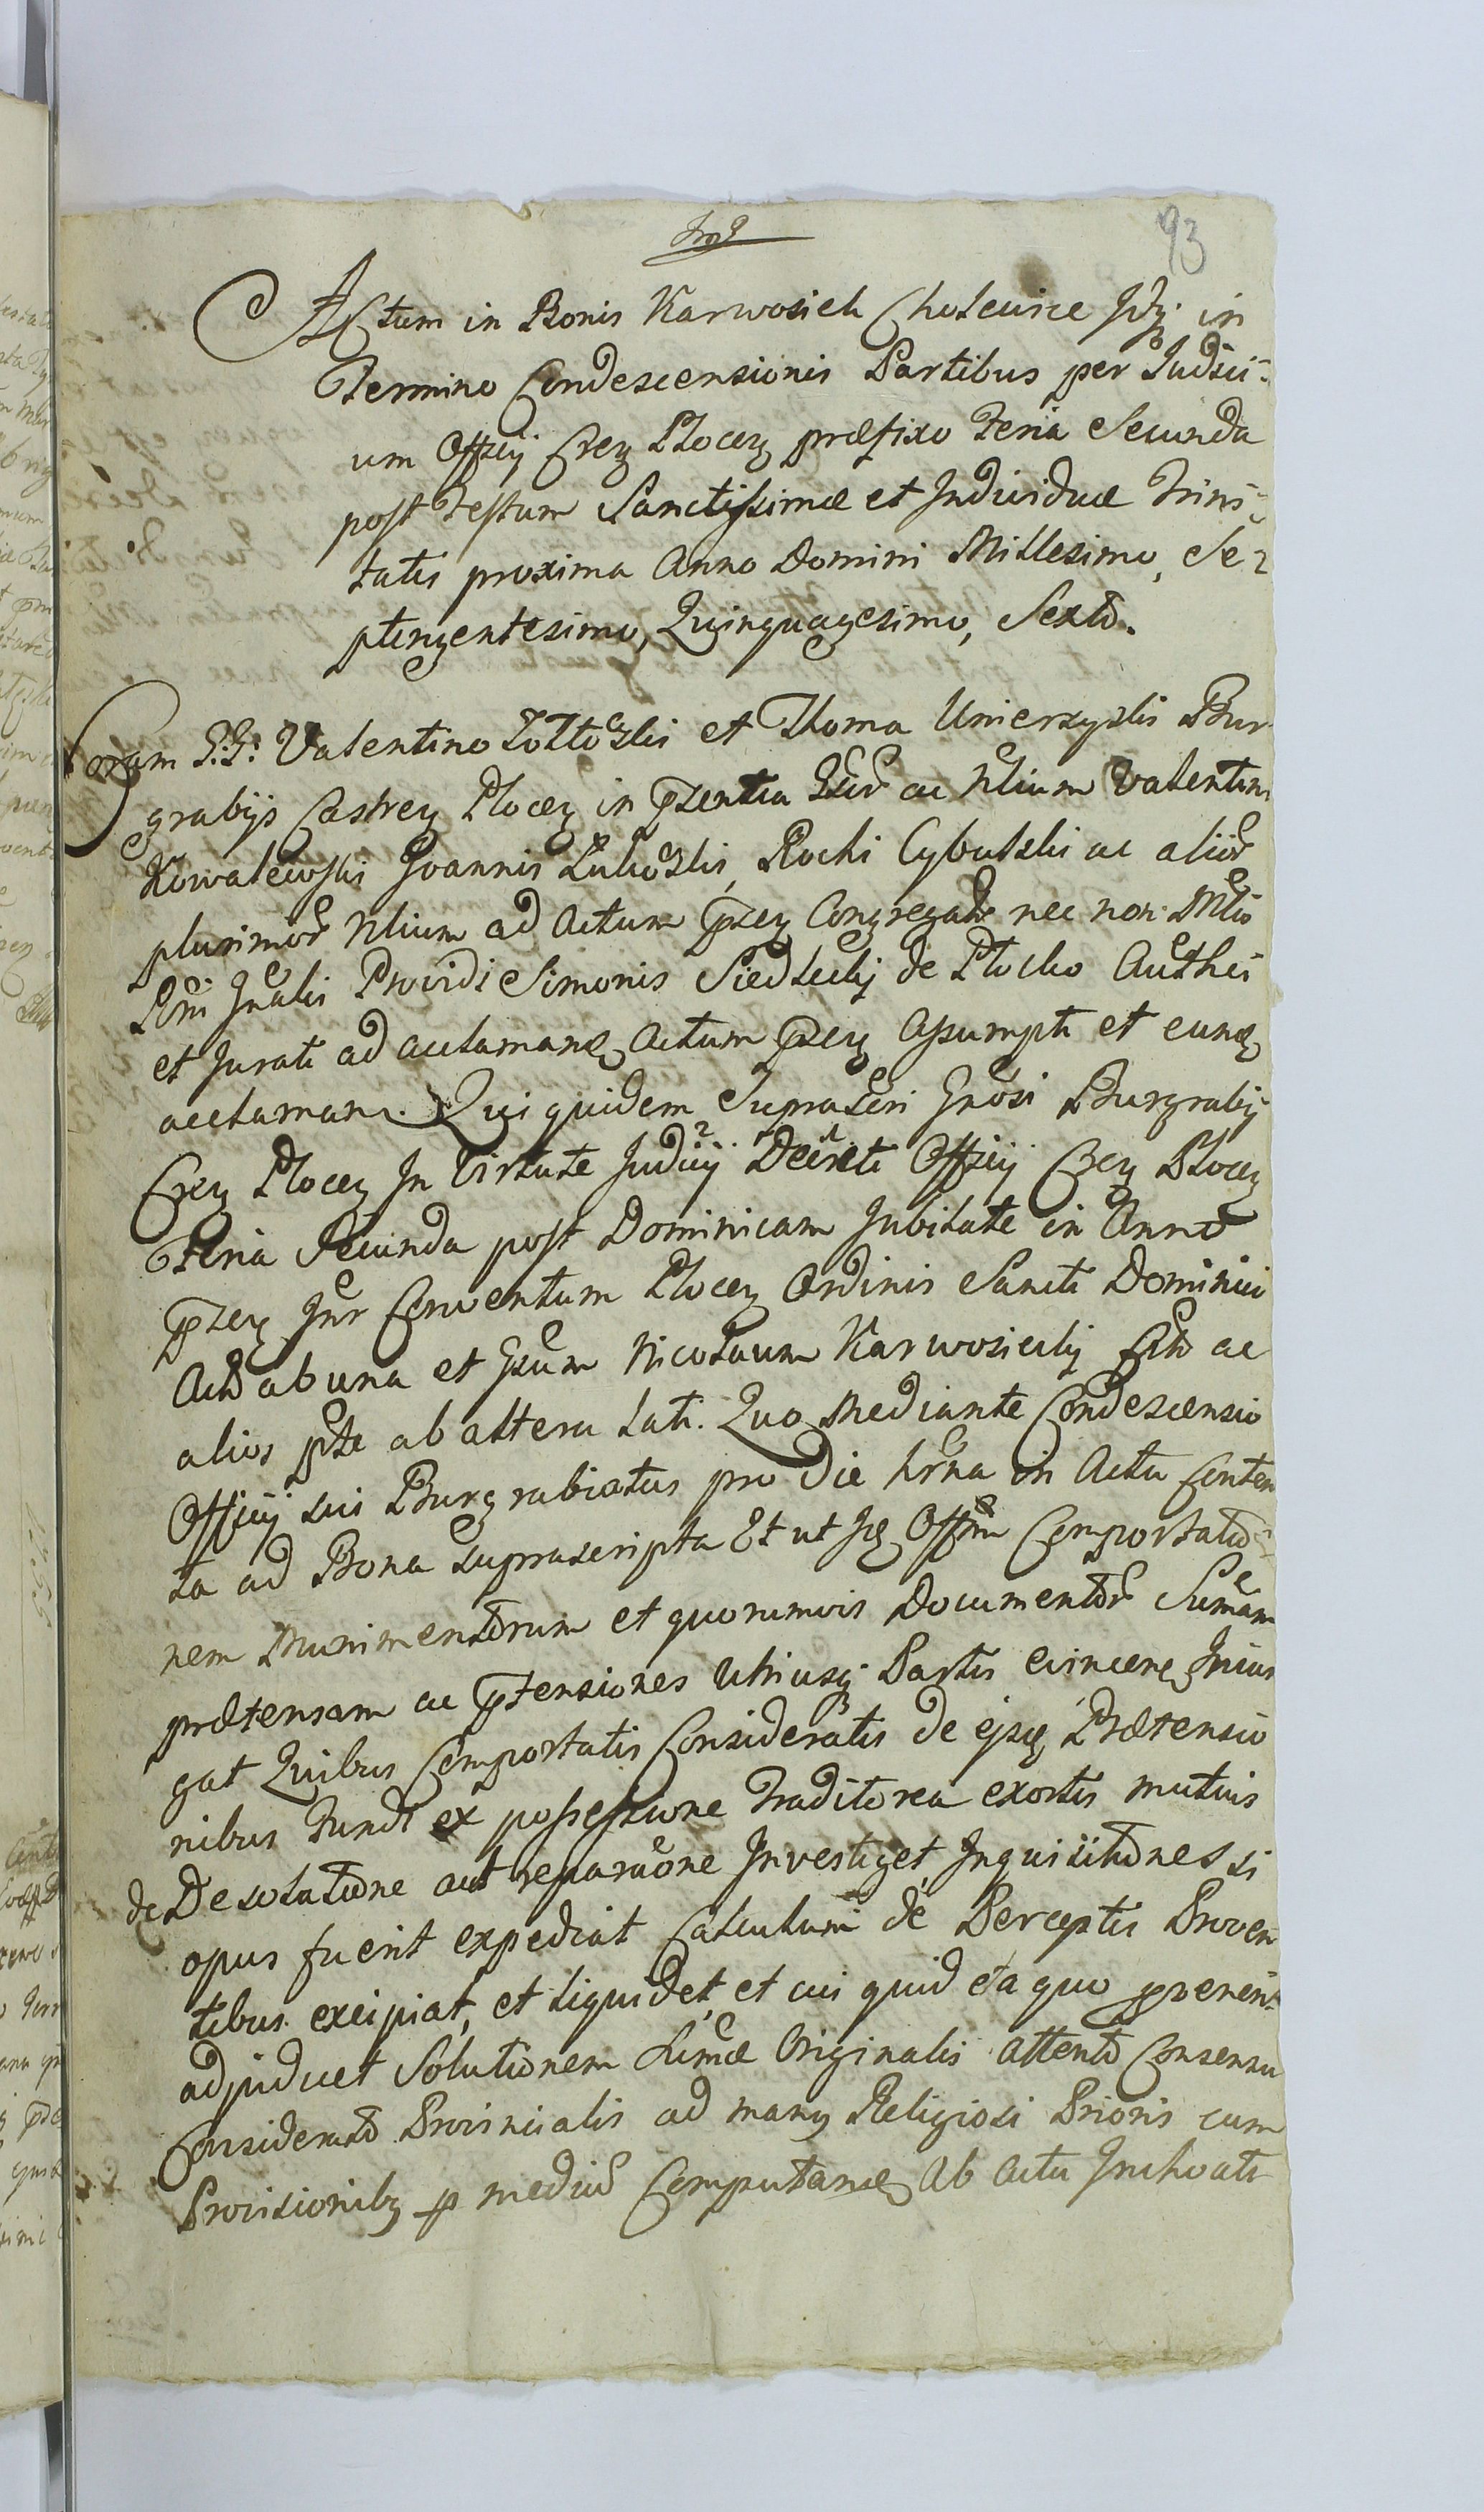 93
Actum in Bonis Karwosiek Cholewice in
Termino Condescensionis Partibus per Judici=
um Officij Crey Plocey præfixo Feria Secunda
post Festum Sanctissimæ et Individuæ Trini=
tatis proxima Anno Domini Millesimo, Se=
ptengentesimo, Quinquagesimo, Sexto.
Coram Valentino et Thoma Bur
grabijs Castrey Plocey in Valentini
Kowalewski Joannis Rochi Cybulski ac alior
plurimor Nlium ad Actum Congregator nec non
Gnalis Providi Simonis Siedlecky de Plocko Authei
et Jurati ad acclamang Actum Assumpti et eung
acclaman. Qui quidem Suprascri Gnosi Burgrabij
Crey Plocey In Virtute Judicij Decreti Officij Crey Plocey
Feria Secunda post Dominicam Jubilate in Anno
Intr Conventum Plocey Ordinis Sancti Dominici
ab una et Gsum Nicolaum Karwosiecky ac
alios ab altera Lati. Quo Mediante Condescensio
Officij sui Burgrabiatus pro Die hrna in Actu Conten
ta ad Bona Suprascripta Et ut Comportatio=
nem Munimentorum et quorumvis Documentor Sumam
prætensam ac ptensiones Utriusq Partis
gat Quibus Comportatis Consideratis de ejsq Prætensio
nibus Fundi ex possessione Traditorea exortis mutuis
de Desolatione aut reparaone Investiget, Inquisitiones si
opus fuerit expediat Calculum de Perceptis Proven
tibus excipiat, et Liquidet, et cui quid
adjudicet Solutionem Sumæ Originalis attento Consensu
Considerato Provincialis ad manus Religiosi Prioris cum
Provisionibus p mediu Computang Ab Actu Inchoati